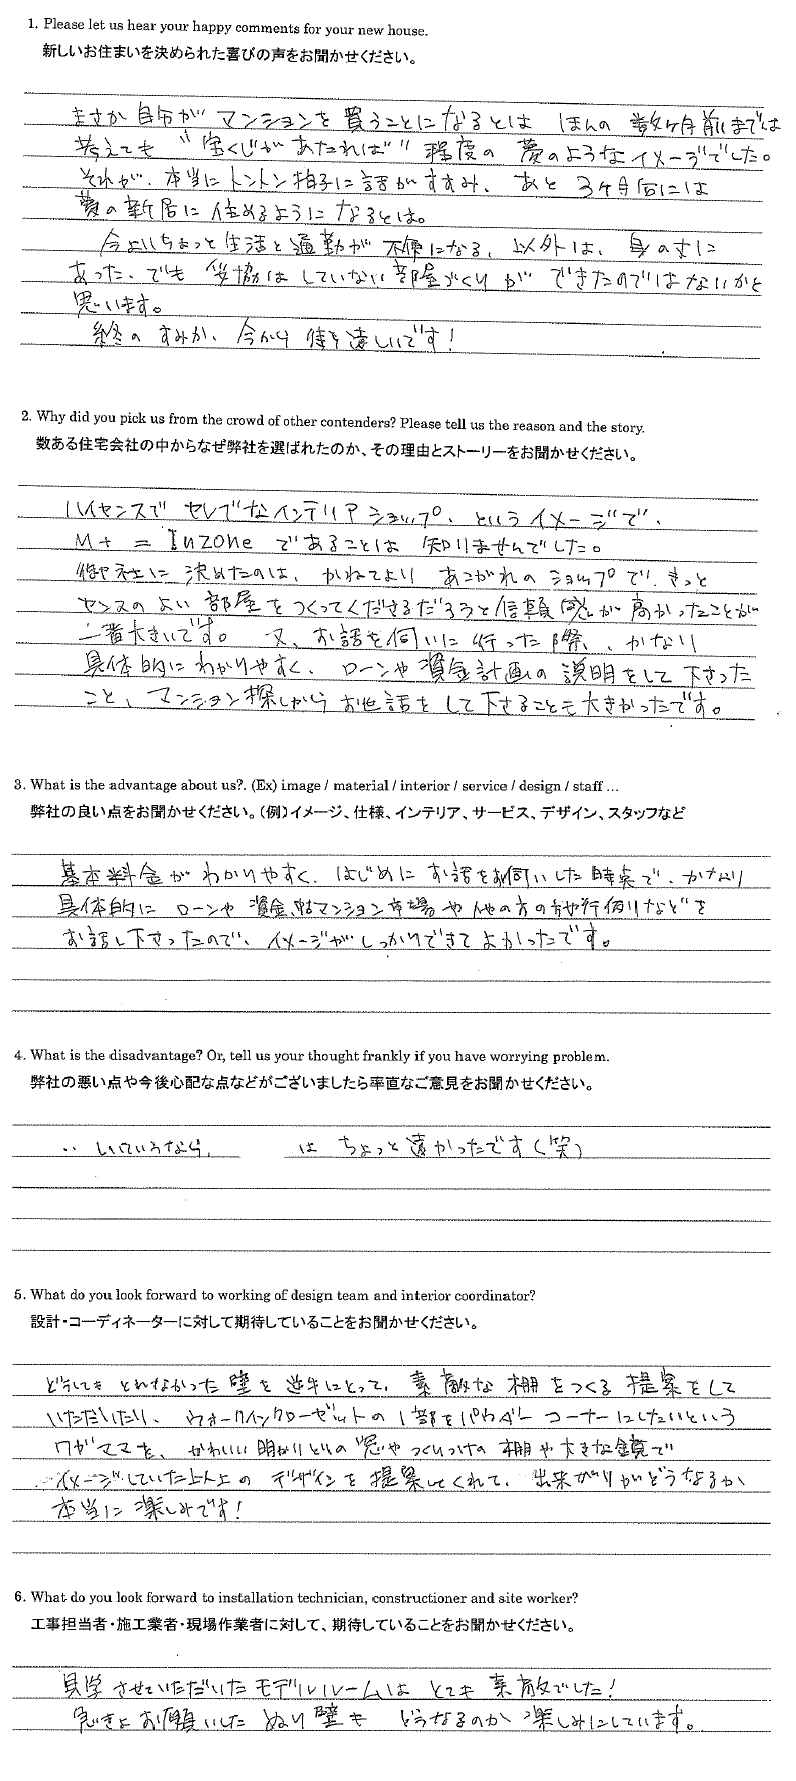 1. Please let us hear your happy comments for your new house.
新しいお住まいを決められた喜びの声をお聞かせください。
まさか自分がマンションを買うことになるとは ほんの数ヶ月前までは
考えても“宝くじがあたれば”程度の夢のようなイメージでした。
それが、本当にトントン拍子に話がすすみ、あと3ヶ月后には
夢の新居に住めるようになるとは。
今よりちょっと生活と通勤が不便になる、以外は、身の丈に
あった、でも妥協はしていない部屋づくりができたのではないかと
思います。
終のすみか、今から待ち遠しいです!
2. Why did you pick us from the crowd of other contenders? Please tell us the reason and the story.
数ある住宅会社の中からなぜ弊社を選ばれたのか、その理由とストーリーをお聞かせください。
ハイセンスでセレブなインテリアショップ、というイメージで、
M+ = Inzoneであることは知りませんでした。
御社に決めたのは、かねてよりあこがれのショップで、きっと
センスのよい部屋をつくってくださるだろうと信頼感が高かったことが
一番大きいです。又、お話を伺いに行った際、かなり
具体的にわかりやすく、ローンや資金計画の説明をして下さった
こと、マンション探しからお世話をして下さることも大きかったです。
3. What is the advantage about us?. (Ex) image / material / interior / service / design / staff ...
弊社の良い点をお聞かせください。(例)イメージ、仕様、インテリア、サービス、デザイン、スタッフなど
基本料金がわかりやすく、はじめにお話をお伺いした時点で、かなり
具体的にローンや資金、マンション市場や他の方の施行例などを
お話し下さったので、イメージがしっかりできてよかったです。
4. What is the disadvantage? Or, tell us your thought frankly if you have worrying problem.
弊社の悪い点や今後心配な点などがございましたら率直なご意見をお聞かせください。
‥ しいていうなら、 は ちょっと遠かったです(笑)
5. What do you look forward to working of design team and interior coordinator?
設計・コーディネーターに対して期待していることをお聞かせください。
どうしてもとれなかった壁を逆手にとって、素敵な棚をつくる提案をして
いただいたり、ウォークインクローゼットの1部をパウダーコーナーにしたいという
ワガママを、かわいい明かりとりの窓やつくりつけの棚や大きな鏡で
イメージしていた以上のデザインを提案してくれて、出来がりがどうなるか
本当に楽しみです!
6. What do you look forward to installation technician, constructioner and site worker?
工事担当者・施工業者・現場作業者に対して、期待していることをお聞かせください。
見学させていただいたモデルルームはとても素敵でした!
急きょお願いしたぬり壁もどうなるのか楽しみにしています。